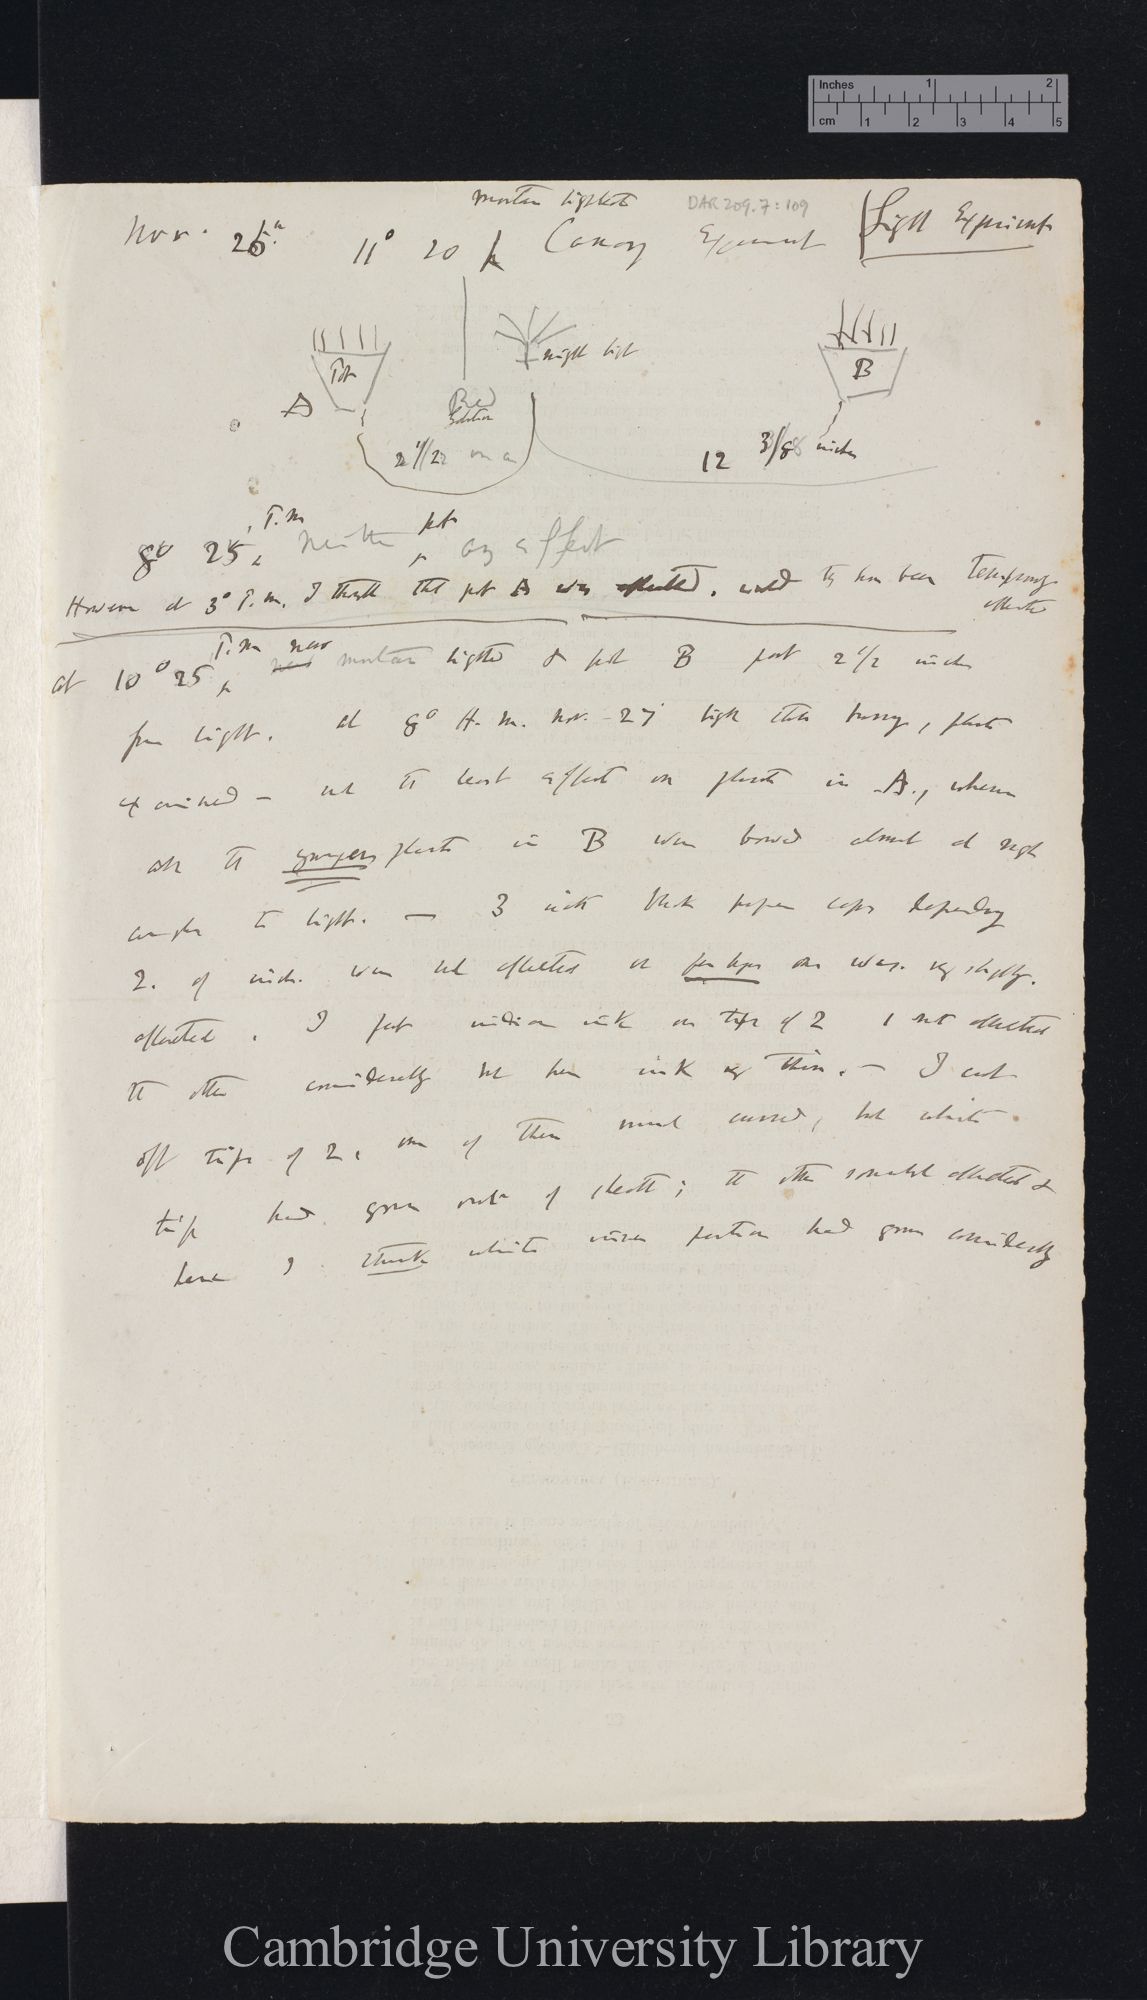 Inches 1 2
cm 1 2 3 4 5
DAR 209.7:109
mortar lighted
Nov. 26th 11° 20 Canary Experiment Light Experiments
Pot night light B
A Red Solution
2 1/2 12 3/8 inches
P.m pot
8° 25' neither any effect
However at 3° P.m. I thought that pot A was affected. could they have been temporary affected
P.m new
at 10° 25' mortar lighted & pot B put 2 1/2 inches
from light. at 8° A.m. Nov. 27 light still burning, plants
examined — not the least effect on plants in A., whereas
all the youngers plants in B were bowed almost at right
angles to light. — 3 with black paper caps
2. of inch. were not affected or perhaps one was. very slightly.
affected. I put indian ink on tips of 2 1 not affected
the other considerably but here ink very thin. — I cut
off tips of 2, one of them much curved, but white
tip had grown out of sheath; the other somewhat affected &
here I think white inner portion had grown considerably
Cambridge University Library